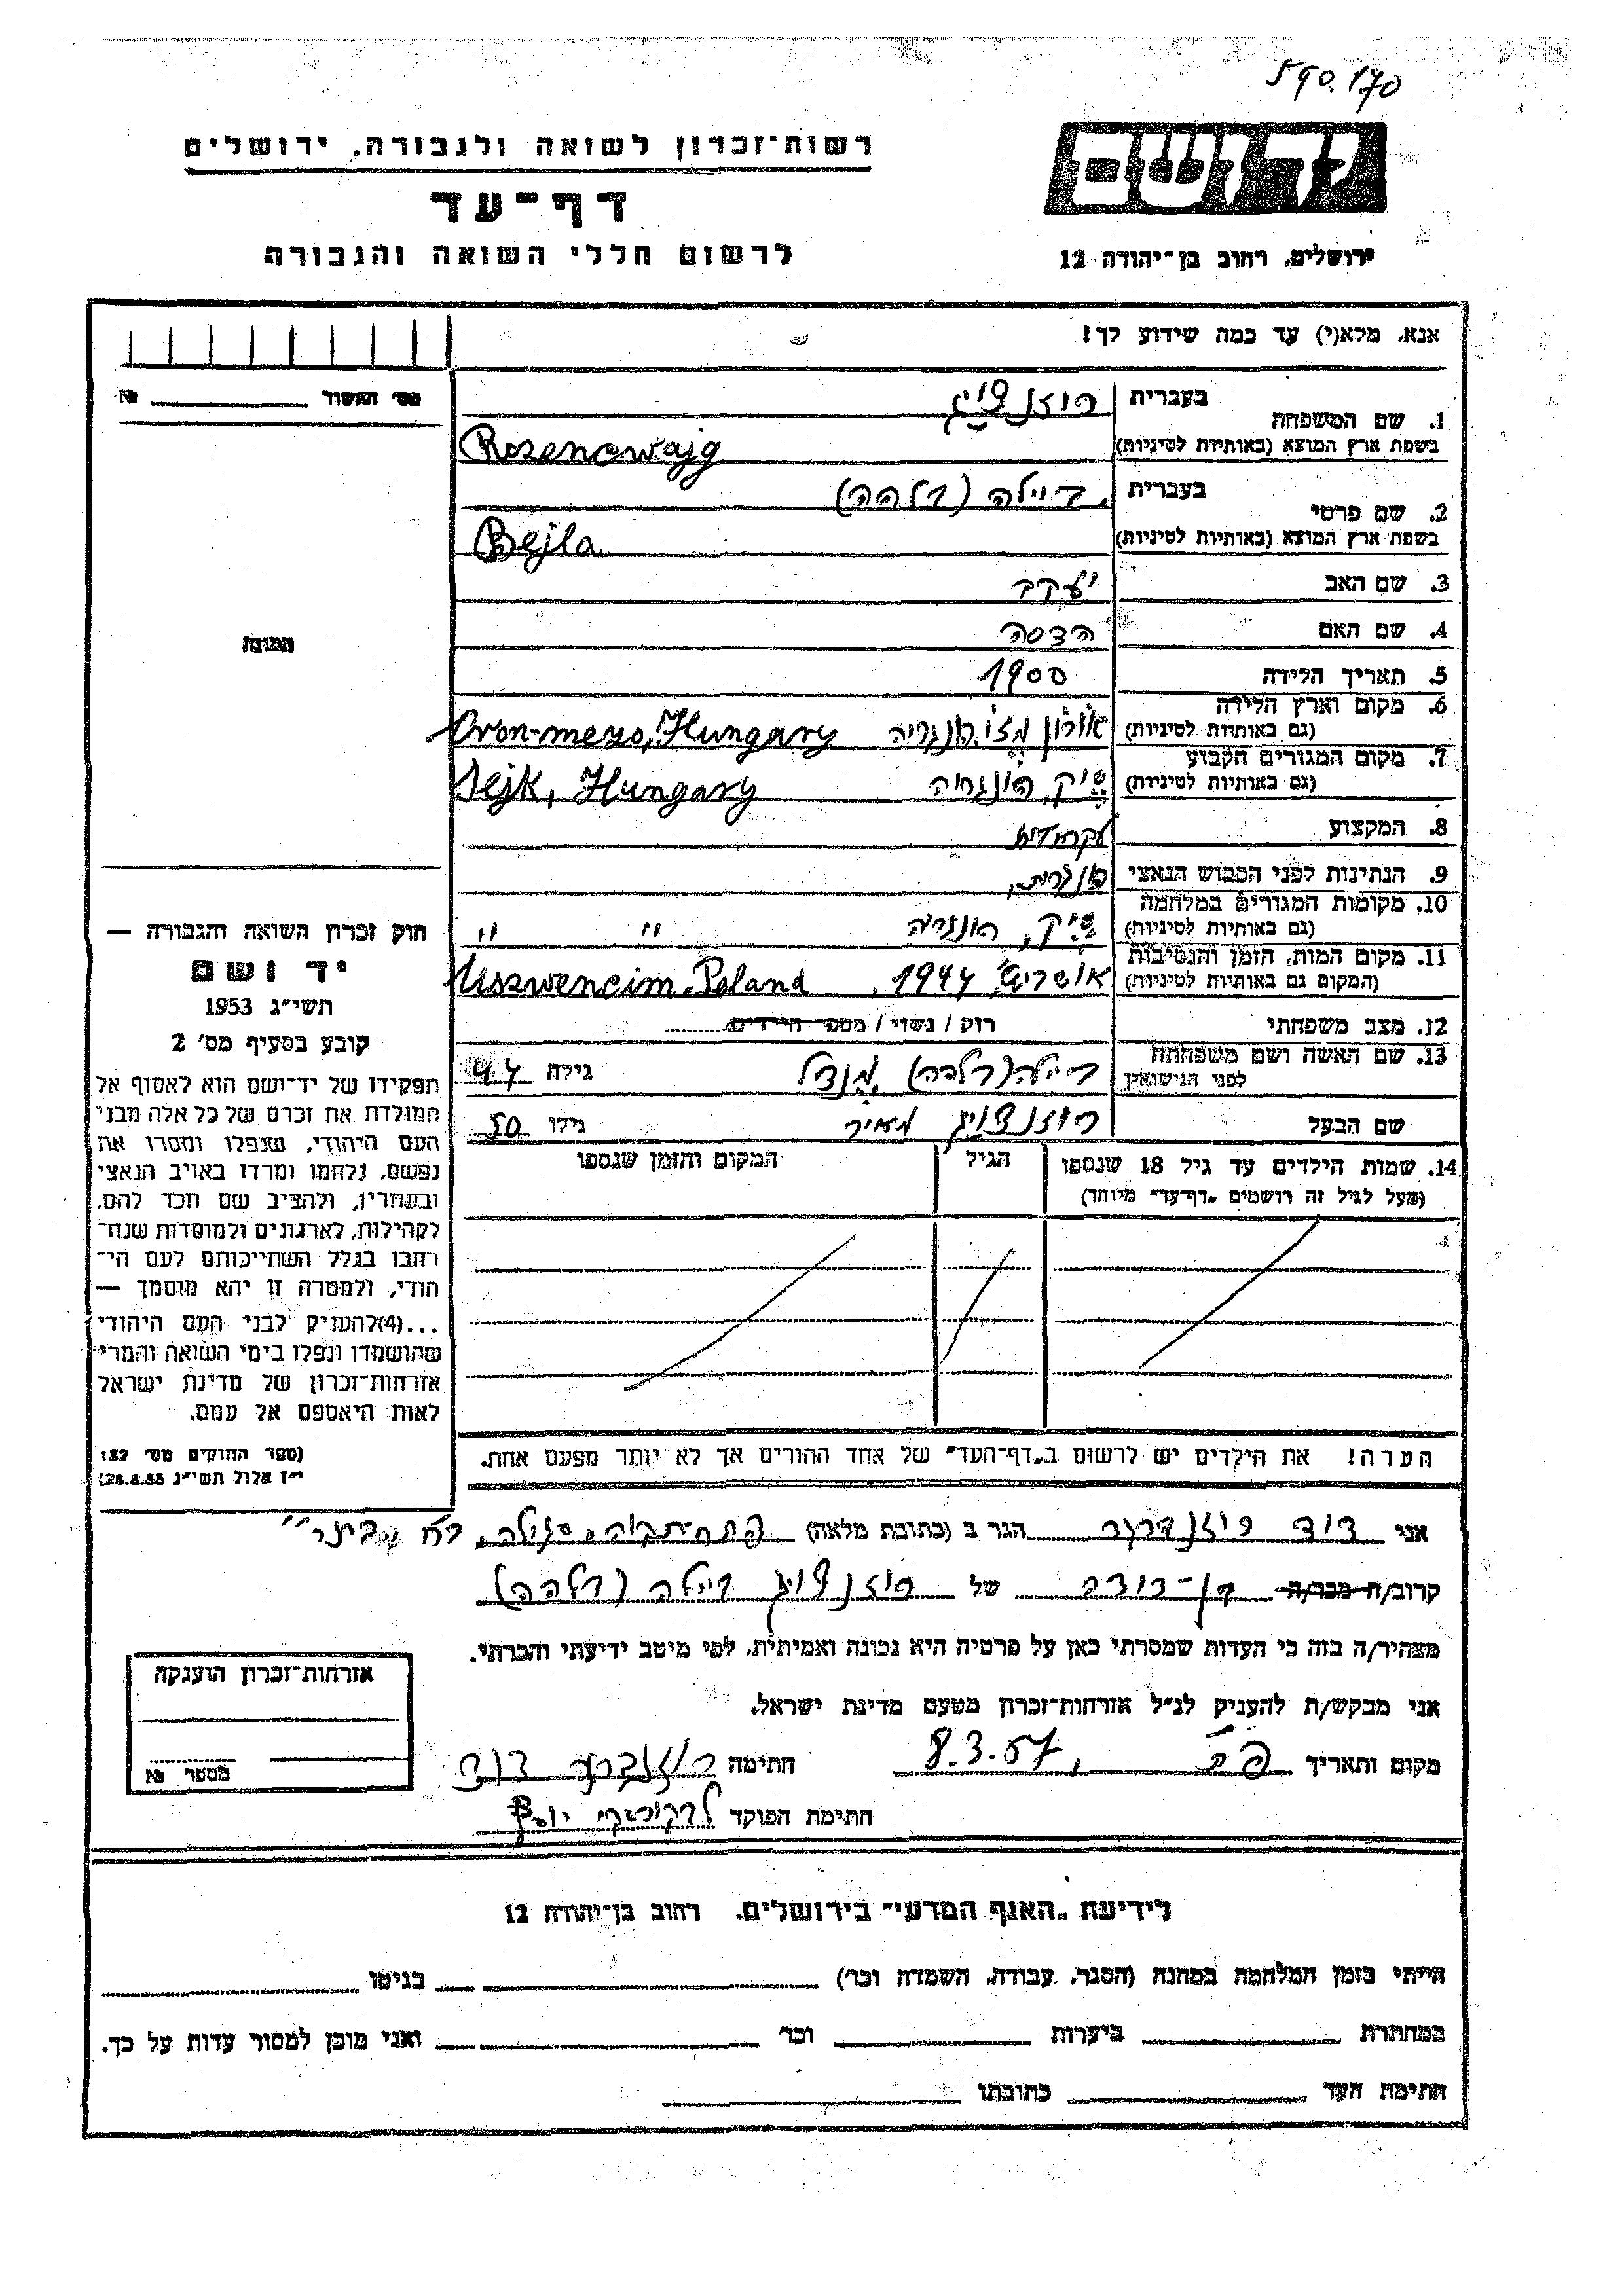 590.170
יד ושם
ירושלים, רחוב בן־יהודה 12
רשות־זכרון לשואה ולגבורה, ירושלים
דף־עד
לרשום חללי השואה והגבורה
אנא, מלא(י) עד כמה שידוע לך!
1. שם המשפחה
בעברית רוזנצויג
בשפת ארץ המוצא (באותיות לטיניות) Rozencwajg
2. שם פרטי
בעברית ביילה (בלהה)
בשפת ארץ המוצא (באותיות לטיניות) Bejla
3. שם האב יעקב
4. שם האם הדסה
5. תאריך הלידה 1900
6. מקום וארץ הלידה (גם באותיות לטיניות) הונגריה Oron-mezo, Hungary
7. מקום המגורים הקבוע (גם באותיות לטיניות) שיק, הונגריה Sejk, Hungary
8. המקצוע עקרת בית
9. הנתינות לפני הכבוש הנאצי הונגרית
10. מקומות המגורים במלחמה (גם באותיות לטיניות) שיק, הונגריה " "
11. מקום המות, הזמן והנסיבות (המקום גם באותיות לטיניות) אושויץ, 1944, Uszwencim, Poland
12. מצב משפחתי רוק / נשוי / מספר הילדים
13. שם האשה ושם משפחתה לפני הנישואין ביילה (בלהה) מנדל גילה 44
שם הבעל רוזנצויג מאיר גילו 50
14. שמות הילדים עד גיל 18 שנספו (מעל לגיל זה רושמים „דף־עד" מיוחד)
הגיל
המקום והזמן שנספו
הערה! את הילדים יש לרשום ב„דף־העד" של אחד ההורים אך לא יותר מפעם אחת.
מס' האשור №
תמונה
חוק זכרון השואה והגבורה —
יד ושם
תשי״ג 1953
קובע בסעיף מס' 2
תפקידו של יד־ושם הוא לאסוף אל
המולדת את זכרם של כל אלה מבני
העם היהודי, שנפלו ומסרו את
נפשם, נלחמו ומרדו באויב הנאצי
ובעוזריו, ולהציב שם וזכר להם,
לקהילות, לארגונים ולמוסדות שנח־
רבו בגלל השתייכותם לעם הי־
הודי, ולמטרה זו יהא מוסמך —
...(4) להעניק לבני העם היהודי
שהושמדו ונפלו בימי השואה והמרי
אזרחות־זכרון של מדינת ישראל
לאות היאספם אל עמם.
(ספר החוקים מס' 132
י״ז אלול תשי״ג 28.8.53)
אני דוד רוזנברג הגר ב (כתובת מלאה) פתח תקוה, סגולה
קרוב/ה מכר/ה בן-דודה של רוזנצויג ביילה (בלהה)
מצהיר/ה בזה כי העדות שמסרתי כאן על פרטיה היא נכונה ואמיתית, לפי מיטב ידיעתי והכרתי.
אני מבקש/ת להעניק לנ״ל אזרחות־זכרון מטעם מדינת ישראל.
מקום ותאריך פ״ת, 8.3.57 חתימה רוזנברג דוד
חתימת הפוקד
אזרחות־זכרון הוענקה
מספר №
לידיעת „האגף המדעי" בירושלים, רחוב בן־יהודה 12
הייתי בזמן המלחמה במחנה (הסגר, עבודה, השמדה וכו') בגיטו
במחתרת ביערות וכו' ואני מוכן למסור עדות על כך.
חתימת העד כתובתו